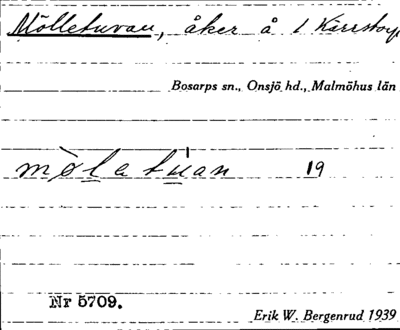 Mölletuvan, åker å 1 Kärrstorp
Bosarps sn., Onsjö hd., Malmöhus län
mòlatúan 19
Nr 5709.
Erik W. Bergenrud 1939